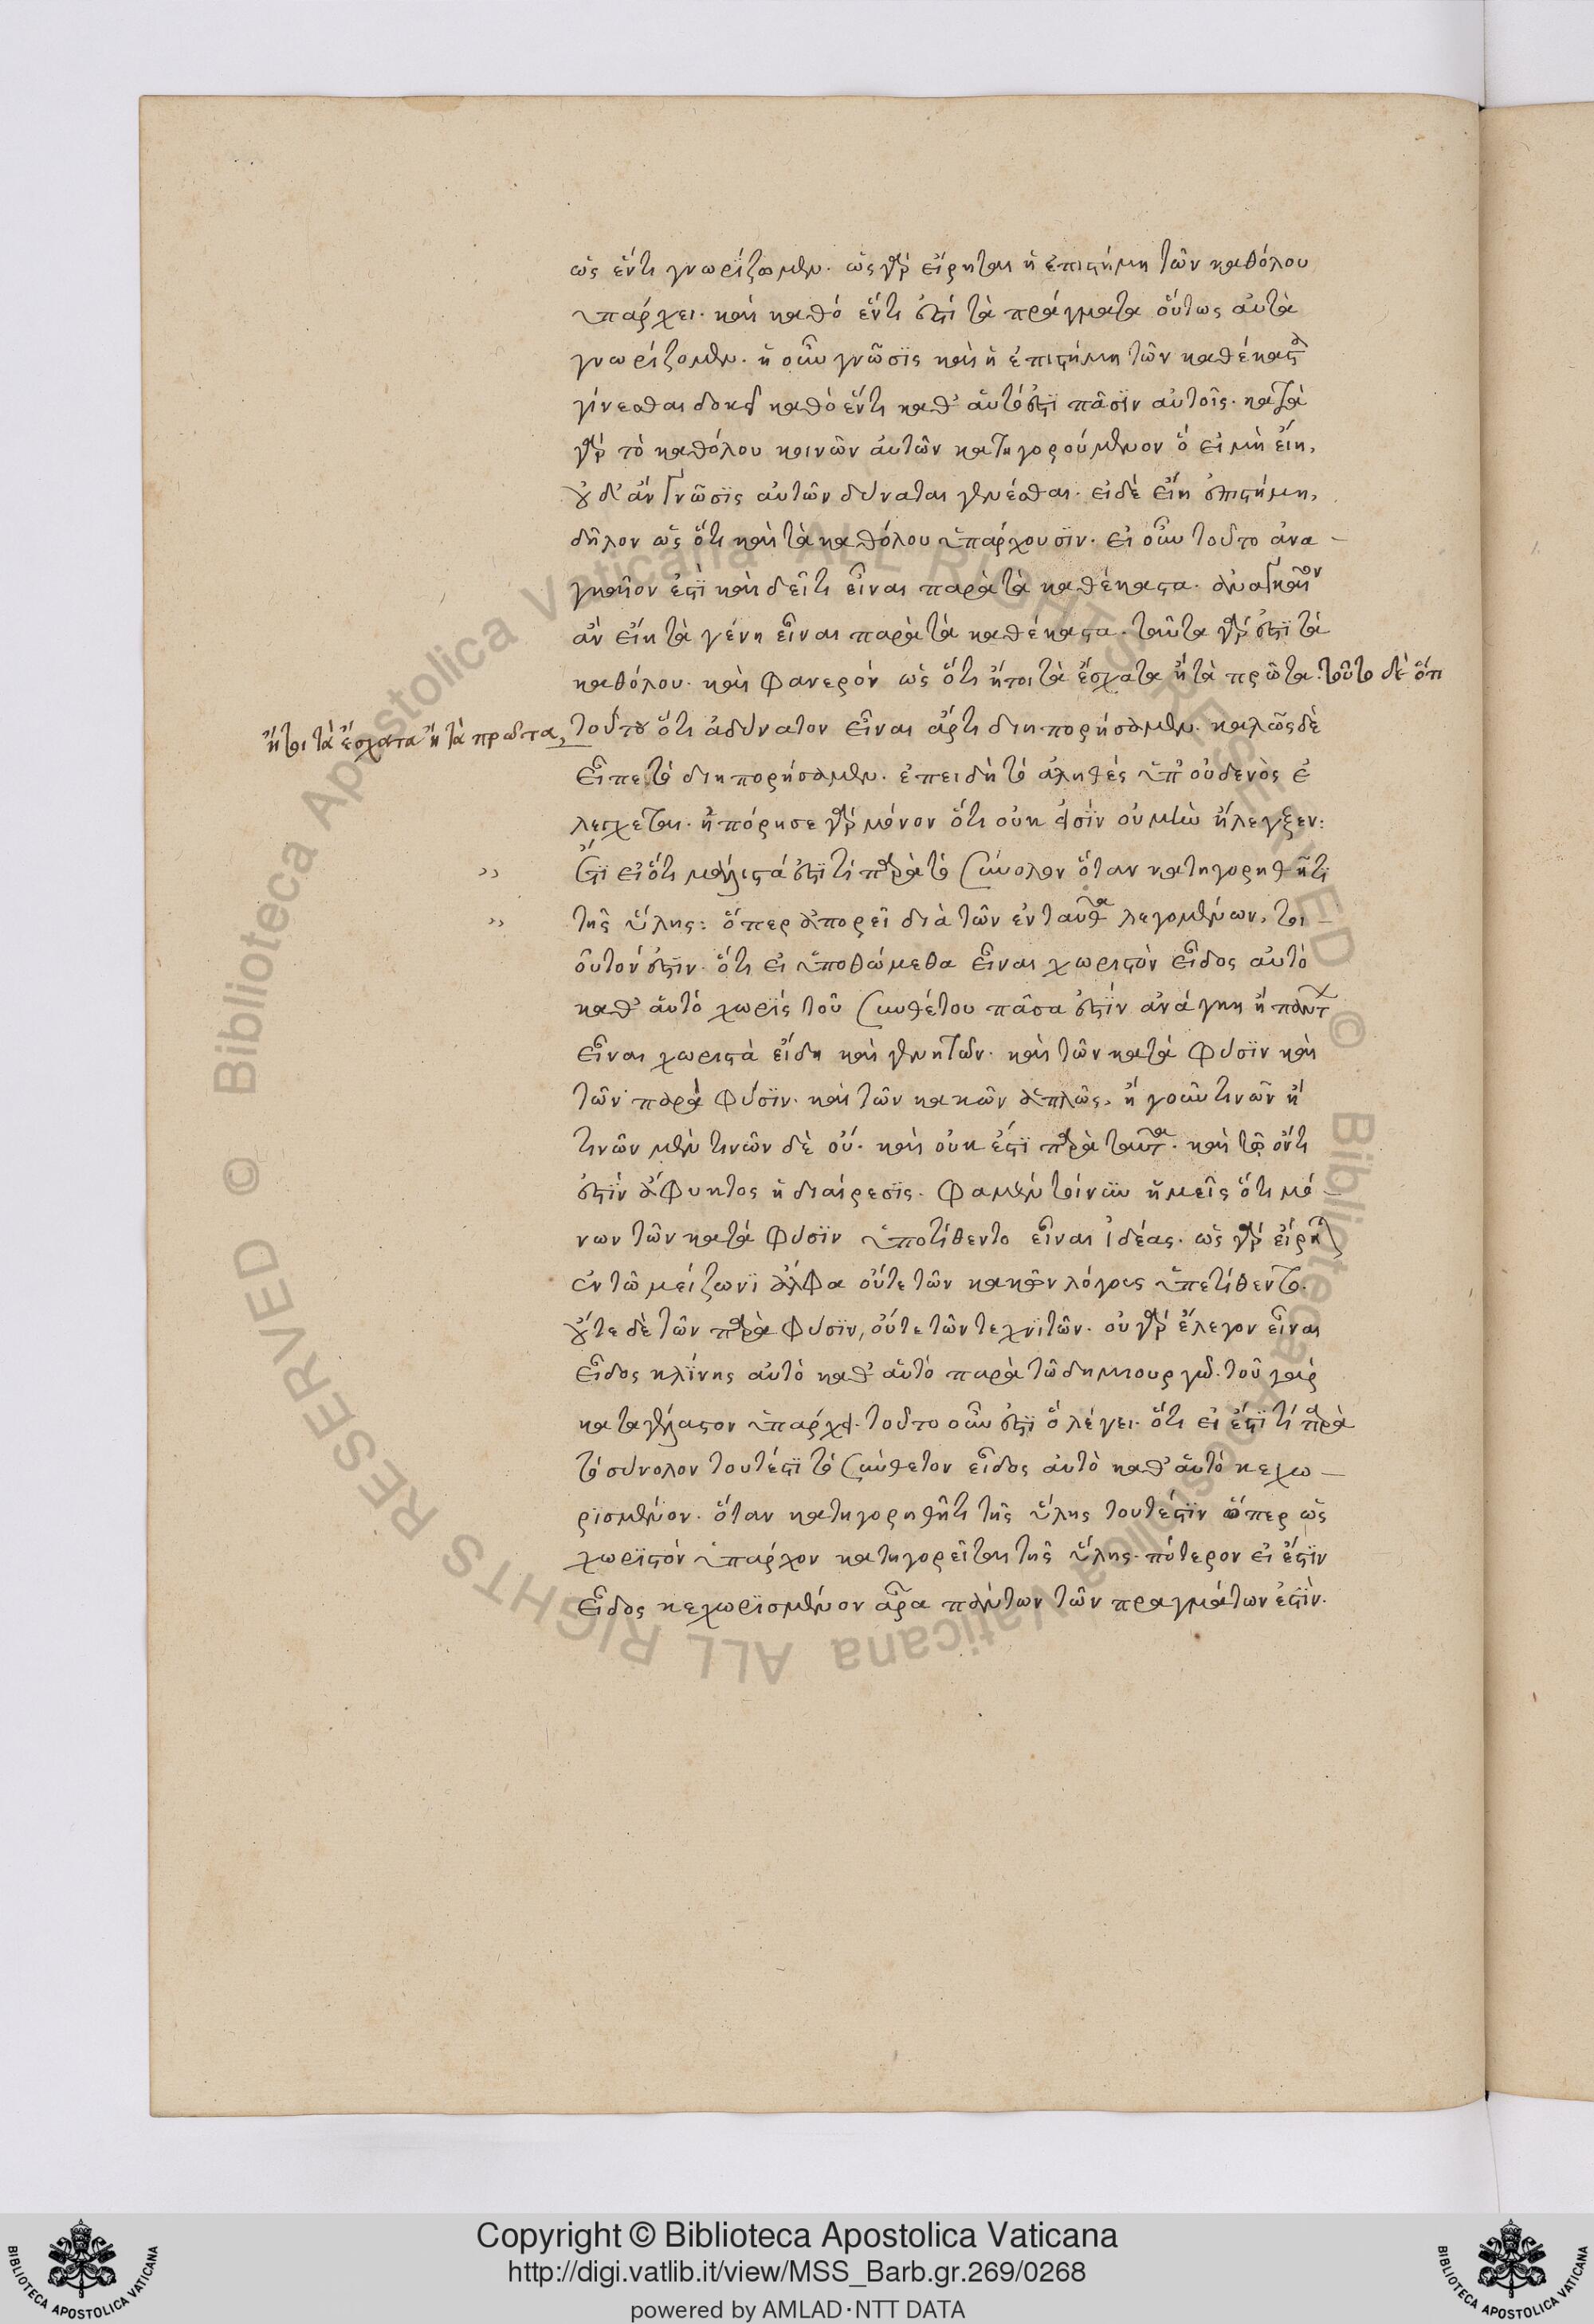 ὡς ἕν τι γνωρίζομεν. ὡς γὰρ εἴρηται ἡ ἐπιστήμη τῶν καθόλου
ὑπάρχει. καὶ καθὸ ἕν τι ἐστὶ τὰ πράγματα οὕτως αὐτὰ
γνωρίζομεν. ἡ οὖν γνῶσις καὶ ἡ ἐπιστήμη τῶν καθέκαστα
γίνεσθαι δοκεῖ καθὸ ἕν τι καθ' αὑτό ἐστι πᾶσιν αὐτοῖς. κατὰ
γὰρ τὸ καθόλου κοινῶν αὐτῶν κατηγορούμενον ὃ εἰ μὴ εἴη,
οὐδ' ἂν γνῶσις αὐτῶν δύναται γενέσθαι. εἰ δὲ εἴη ἐπιστήμη,
δῆλον ὡς ὅτι καὶ τὰ καθόλου ὑπάρχουσιν. εἰ οὖν τοῦτο ἀνα–
γκαῖον ἐστὶ καὶ δεῖ τι εἶναι παρὰ τὰ καθέκαστα. ἀναγκαῖον
ἂν εἴη τὰ γένη εἶναι παρὰ τὰ καθέκαστα. ταῦτα γάρ ἐστι τὰ
καθόλου. καὶ φανερὸν ὡς ὅτι ἤτοι τὰ ἔσχατα ἢ τὰ πρῶτα. τοῦτο δὲ ὅτι
ἤτοι τὰ ἔσχατα ἢ τὰ πρῶτα,
τοῦτο ὅτι ἀδύνατον εἶναι ἄρτι διηπορήσαμεν. καλῶς δὲ
εἶπε τὸ διηπορήσαμεν. ἐπειδὴ τὸ ἀληθὲς ὑπ' οὐδενὸς ἐ
λέγχεται. ἠπόρησε γὰρ μόνον ὅτι οὐκ εἰσὶν οὐ μὴν ἤλεγξεν:
Ἔτι εἰ ὅτι μάλιστά ἐστί τι παρὰ τὸ σύνολον ὅταν κατηγορηθῆ τι
τῆς ὕλης: ὅπερ ἀπορεῖ διὰ τῶν ἐνταῦθα λεγομένων, τοι–
οῦτόν ἐστιν. ὅτι εἰ ὑποθώμεθα εἶναι χωριστὸν εἶδος αὐτὸ
καθ' αὑτὸ χωρὶς τοῦ συνθέτου πᾶσα ἐστὶν ἀνάγκη ἢ πάντων
εἶναι χωριστὰ εἴδη καὶ γενητῶν. καὶ τῶν κατὰ φύσιν καὶ
τῶν παρὰ φύσιν. καὶ τῶν κακῶν ἁπλῶς, ἢ γοῦν τινῶν ἢ
τινῶν μὲν τινῶν δὲ οὔ. καὶ οὐκ ἔστι παρὰ ταῦτα. καὶ τῷ ὄντι
ἐστὶν ἄφυκτος ἡ διαίρεσις. φαμὲν τοίνυν ἡμεῖς ὅτι μό–
νων τῶν κατὰ φύσιν ὑποτίθεντο εἶναι ἰδέας. ὡς γὰρ εἴρηται
ἐν τῷ μείζωνι ἄλφα οὔτε τῶν κακῶν λόγους ὑπετίθεντο.
οὔτε δὲ τῶν παρὰ φύσιν, οὔτε τῶν τεχνιτῶν. οὐ γὰρ ἔλεγον εἶναι
εἶδος κλίνης αὐτὸ καθ' αὑτὸ παρὰ τῷ δημιουργῷ. τοῦ γὰρ
καταγέλαστον ὑπάρχει. τοῦτο οὖν ἐστι ὃ λέγει. ὅτι εἰ ἔστι τί παρὰ
τὸ σύνολον τουτέστι τὸ σύνθετον εἶδος αὐτὸ καθ' αὑτὸ κεχω–
ρισμένον. ὅταν κατηγορηθῆ τι τῆς ὕλης τουτέστιν ὅπερ ὡς
χωριστὸν ὑπάρχον κατηγορεῖται τῆς ὕλης. πότερον εἰ ἔστιν
εἶδος κεχωρισμένον ἆρα πάντων τῶν πραγμάτων ἐστίν.
Copyright © Biblioteca Apostolica Vaticana
http://digi.vatlib.it/view/MSS_Barb.gr.269/0268
powered by AMLAD·NTT DATA